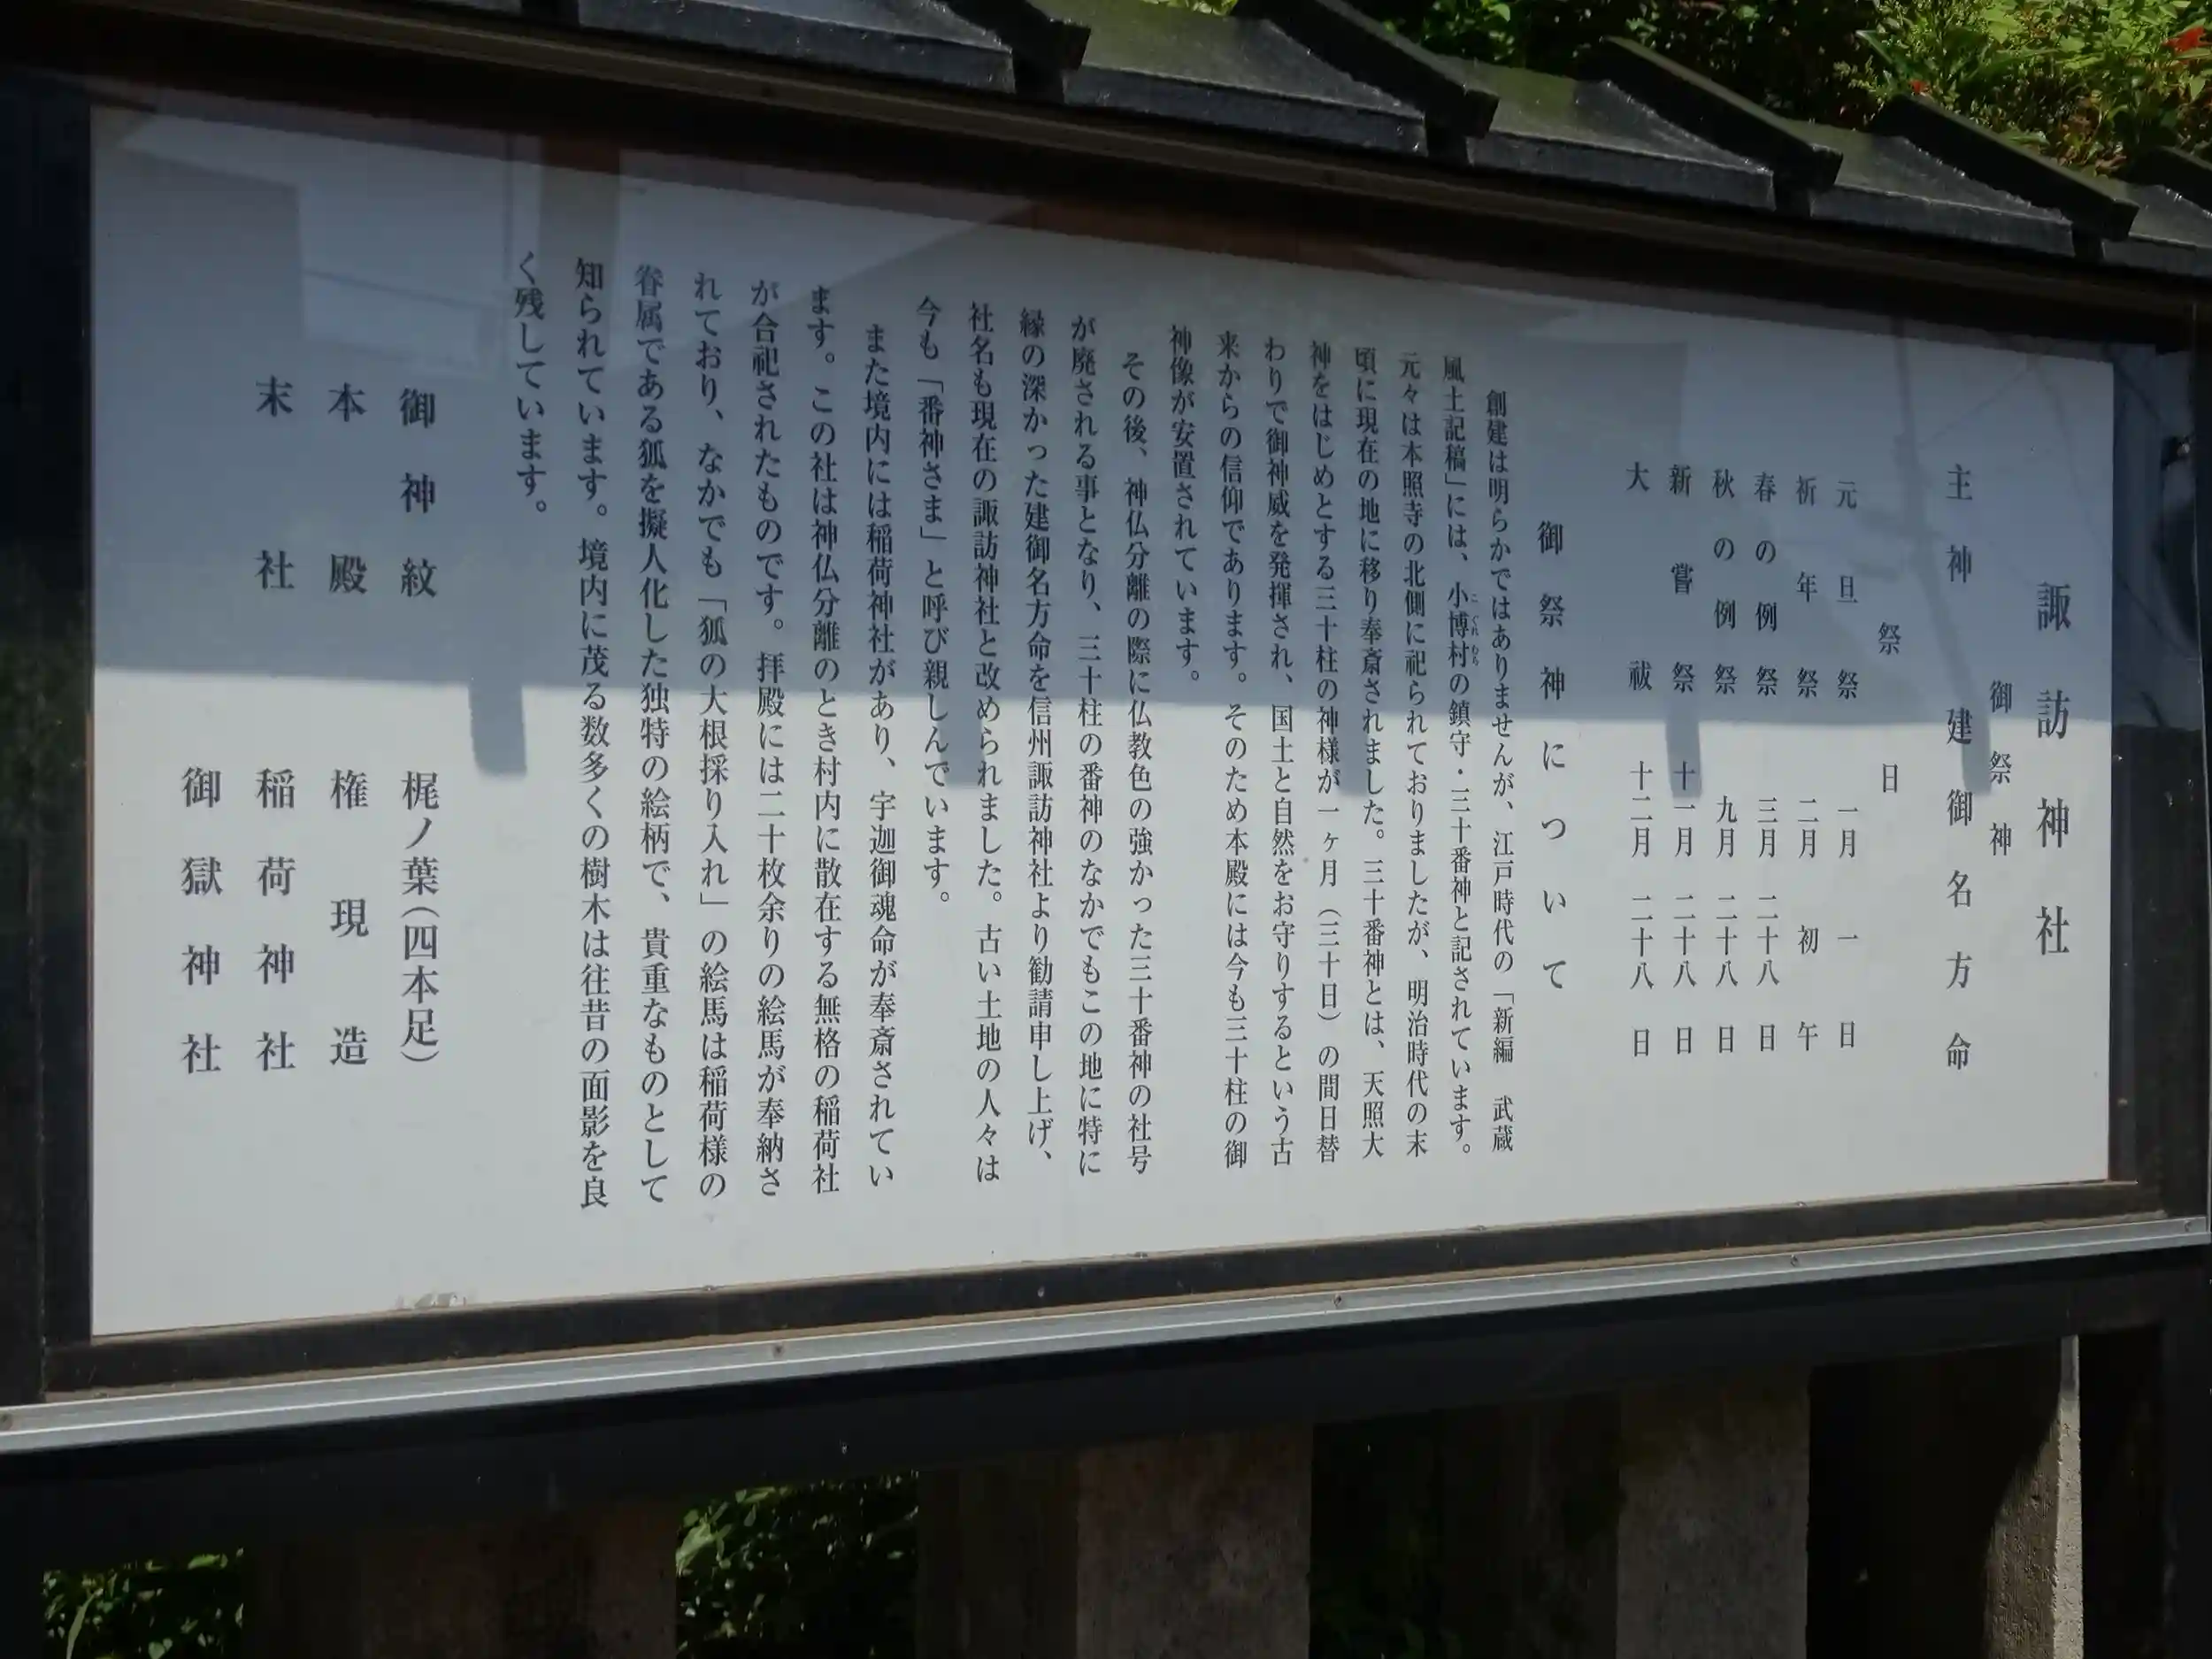 諏訪神社
御祭神
主神 建御名方命
祭日
元旦祭 一月一日
祈年祭 二月初午
春の例祭 三月二十八日
秋の例祭 九月二十八日
新嘗祭 十一月二十八日
大祓 十二月 日
御祭神について
創建は明らかではありませんが、江戸時代の「新編 武蔵
風土記稿」には、小博村の鎮守・三十番神と記されています。
元々は本照寺の北側に祀られておりましたが、明治時代の末
頃に現在の地に移り奉斎されました。三十番神とは、天照大
神をはじめとする三十柱の神様が一ヶ月（三十日）の間日替
わりで御神威を発揮され、国土と自然をお守りするという古
来からの信仰であります。そのため本殿には今も三十柱の御
神像が安置されています。
その後、神仏分離の際に仏教色の強かった三十番神の社号
が廃される事となり、三十柱の番神のなかでもこの地に特に
縁の深かった建御名方命を信州諏訪神社より勧請申し上げ、
社名も現在の諏訪神社と改められました。古い土地の人々は
今も「番神さま」と呼び親しんでいます。
また境内には稲荷神社があり、宇迦御魂命が奉斎されてい
ます。この社は神仏分離のとき村内に散在する無格の稲荷社
が合祀されたものです。拝殿には二十枚余りの絵馬が奉納さ
れており、なかでも「狐の大根採り入れ」の絵馬は稲荷様の
眷属である狐を擬人化した独特の絵柄で、貴重なものとして
知られています。境内に茂る数多くの樹木は往昔の面影を良
く残しています。
御神紋 梶ノ葉（四本足）
本殿 権現造
末社 稲荷神社
御嶽神社